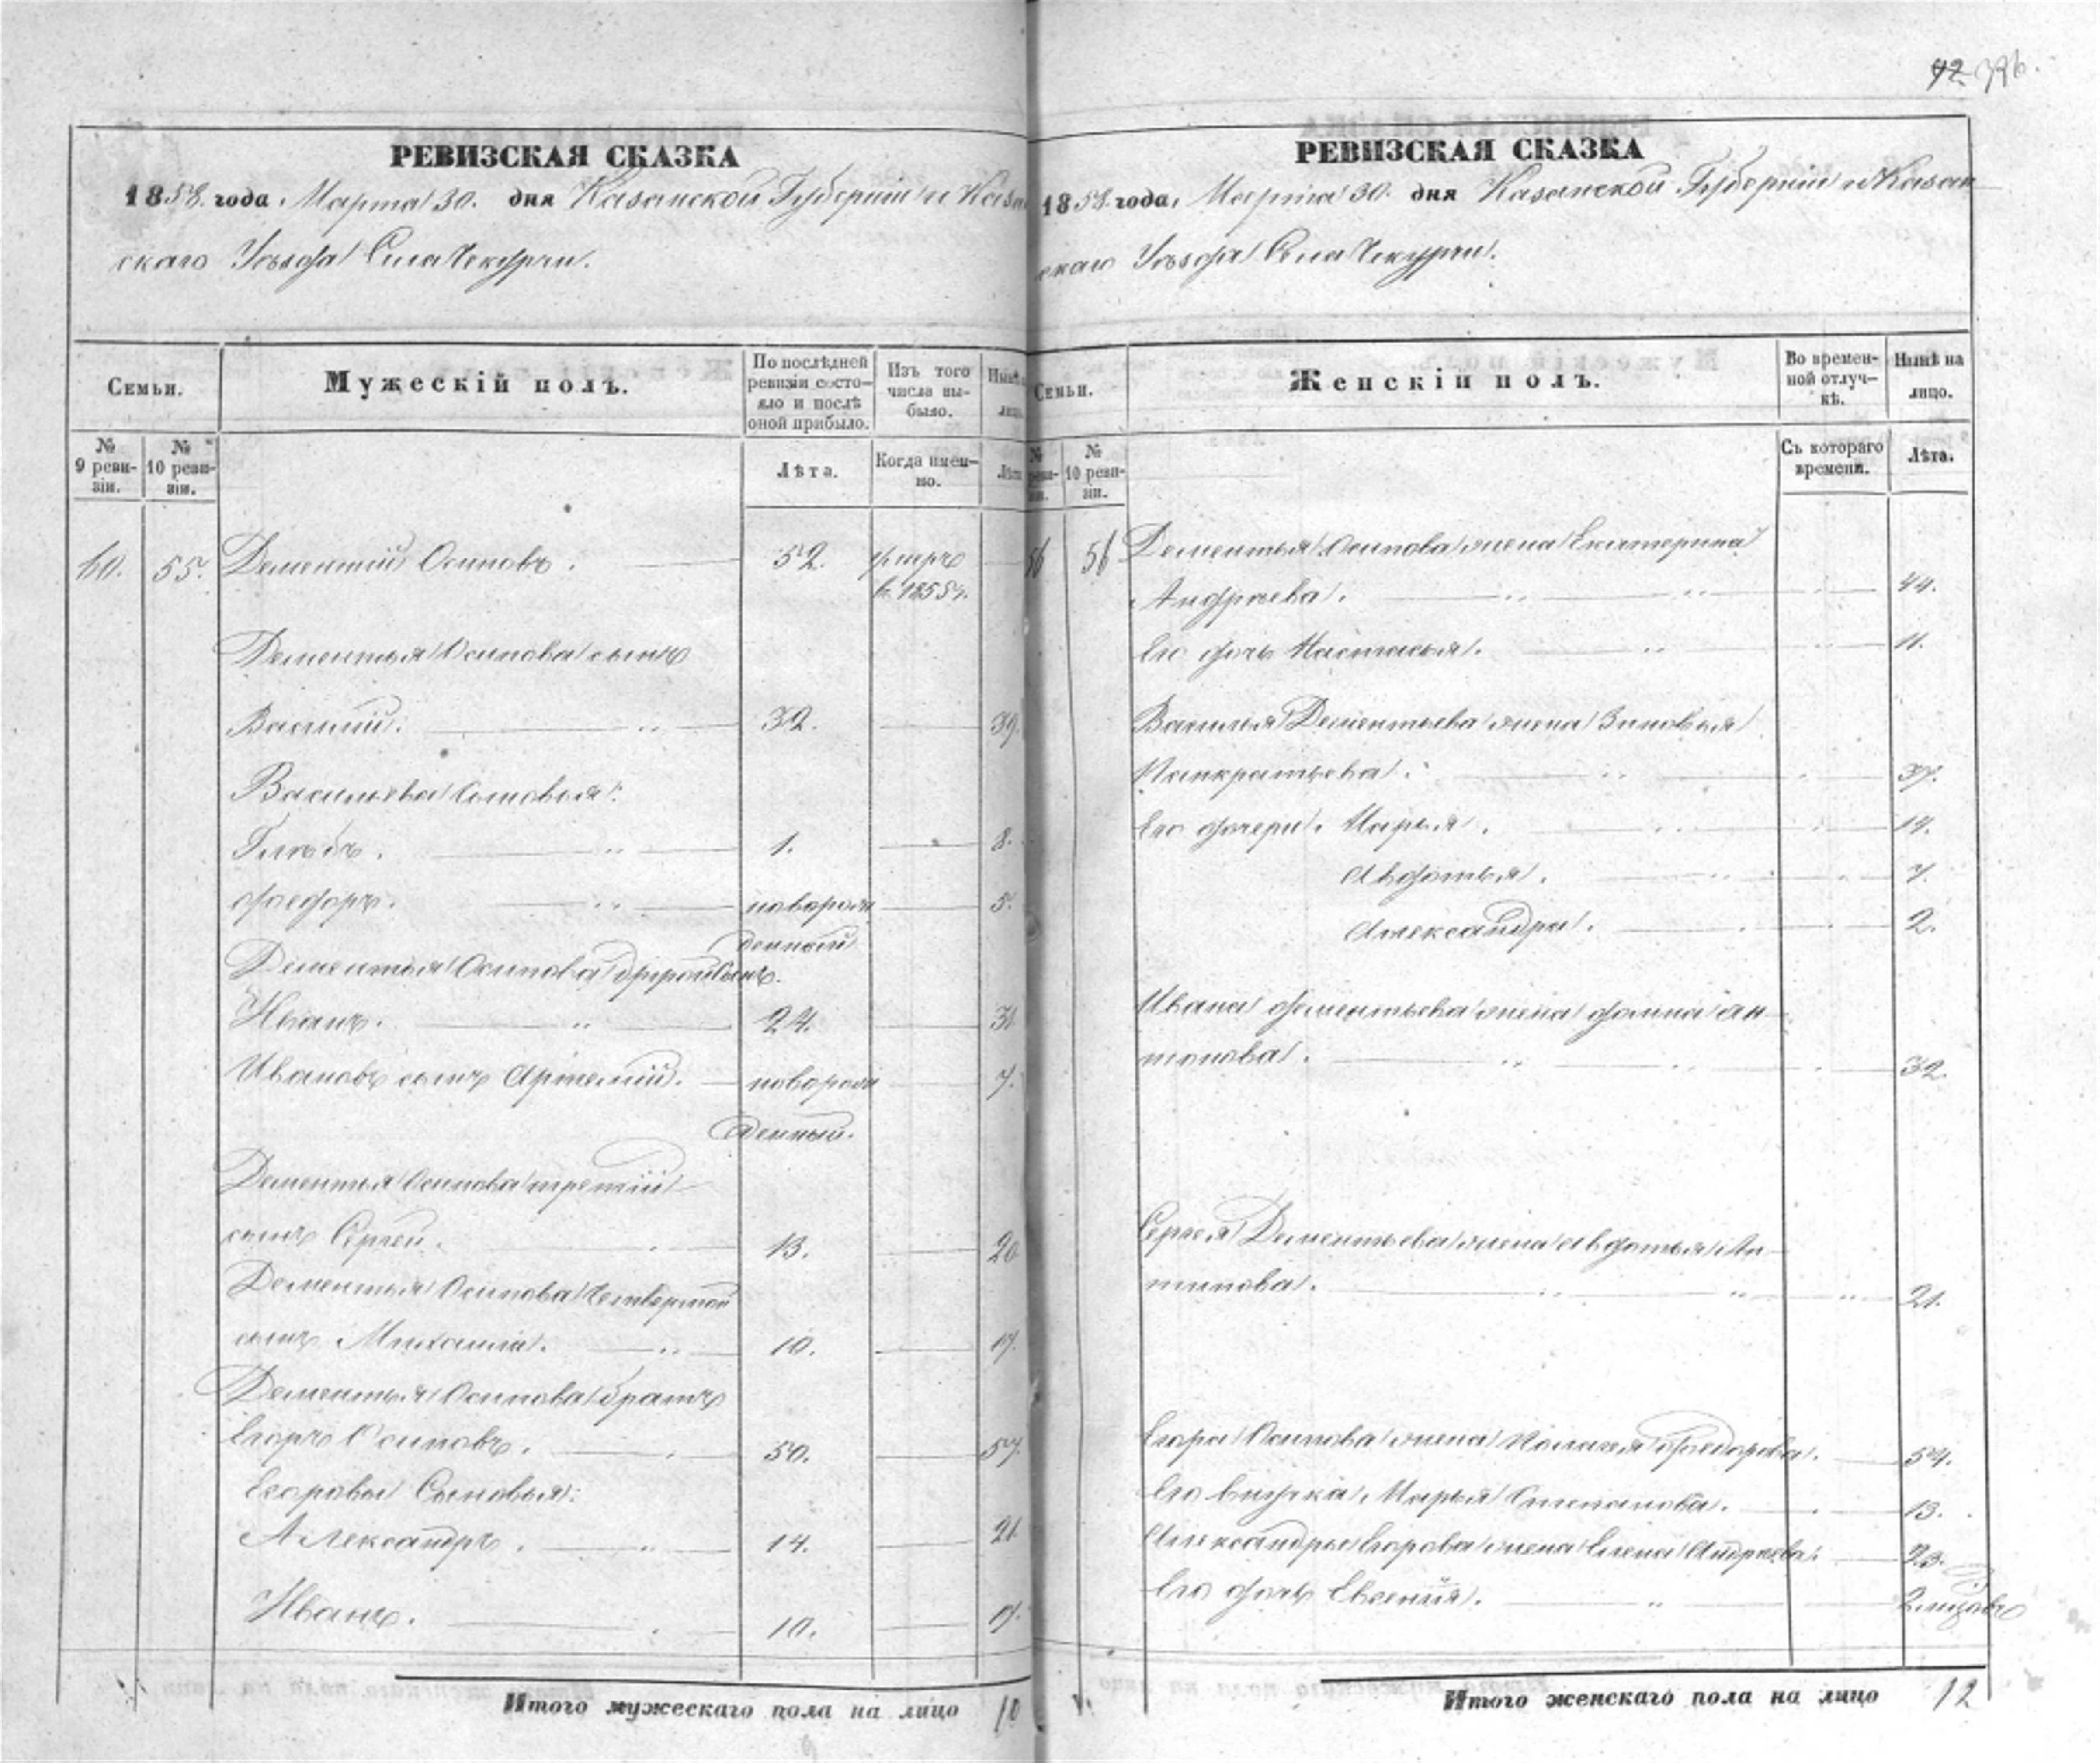 42 396.
РЕВИЗСКАЯ СКАЗКА
1858. года Марта 30. дня Казанской Губерніи и Казан
скаго Уѣзда Села Чекурчи.
Семьи.
Мужескій полъ.
По послѣдней
ревизіи состо-
яло и послѣ
оной прибыло.
Изъ того
числа вы-
было.
Нынѣ
лицо
№
9 реви-
зіи.
№
10 реви-
зіи.
Лѣта.
Когда имен-
но.
Лѣта
60. 55. Дементій Осиповъ. 52. умръ
в 1855 г.
Дементья Осипова сынъ
Василій. 32. 39.
Васильевы сыновья:
Глѣбъ. 1. 8.
Федоръ. новорож 5.
денный
Дементья Осипова другой сынъ.
Иванъ. 24. 31
Ивановъ сынъ Артемій. новорож 7.
денный.
Дементья Осипова третій
сынъ Сергей. 13. 20
Дементья Осипова четвертой
сынъ Михаила. 10. 17.
Дементья Осипова братъ
Егоръ Осиповъ. 50. 57.
Егоровы Сыновья:
Александръ. 14. 21
Иванъ. 10. 17.
Итого мужескаго пола на лицо 10
РЕВИЗСКАЯ СКАЗКА
1858. года, Марта 30. дня Казанской Губерніи и Казан
скаго Уѣзда Села Чекурчи.
Семьи.
Женскій полъ.
Во времен-
ной отлуч-
кѣ.
Нынѣ на
лицо.
№
реви-
зіи.
№
10 реви-
зіи.
Съ котораго
времени.
Лѣта.
56 56 Дементья Осипова жена Екатерина
Андреева. 44.
Его дочь Настасья. 11.
Василья Дементьева жена Зиновья
Панкратьева. 37.
Его дочери. Марья. 14.
Авдотья. 7.
Александра. 2.
Ивана Дементьева жена Домна Ан
тонова. 32.
Сергея Дементьева жена Авдотья Ан
типова. 21.
Егора Осипова жена Пелагея Федорова. 54.
Его внучка Марья Степанова. 13.
Александра Егорова жена Елена Андреева. 23.
Его дочь Евгения. 2 месяцовъ
Итого женскаго пола на лицо 12